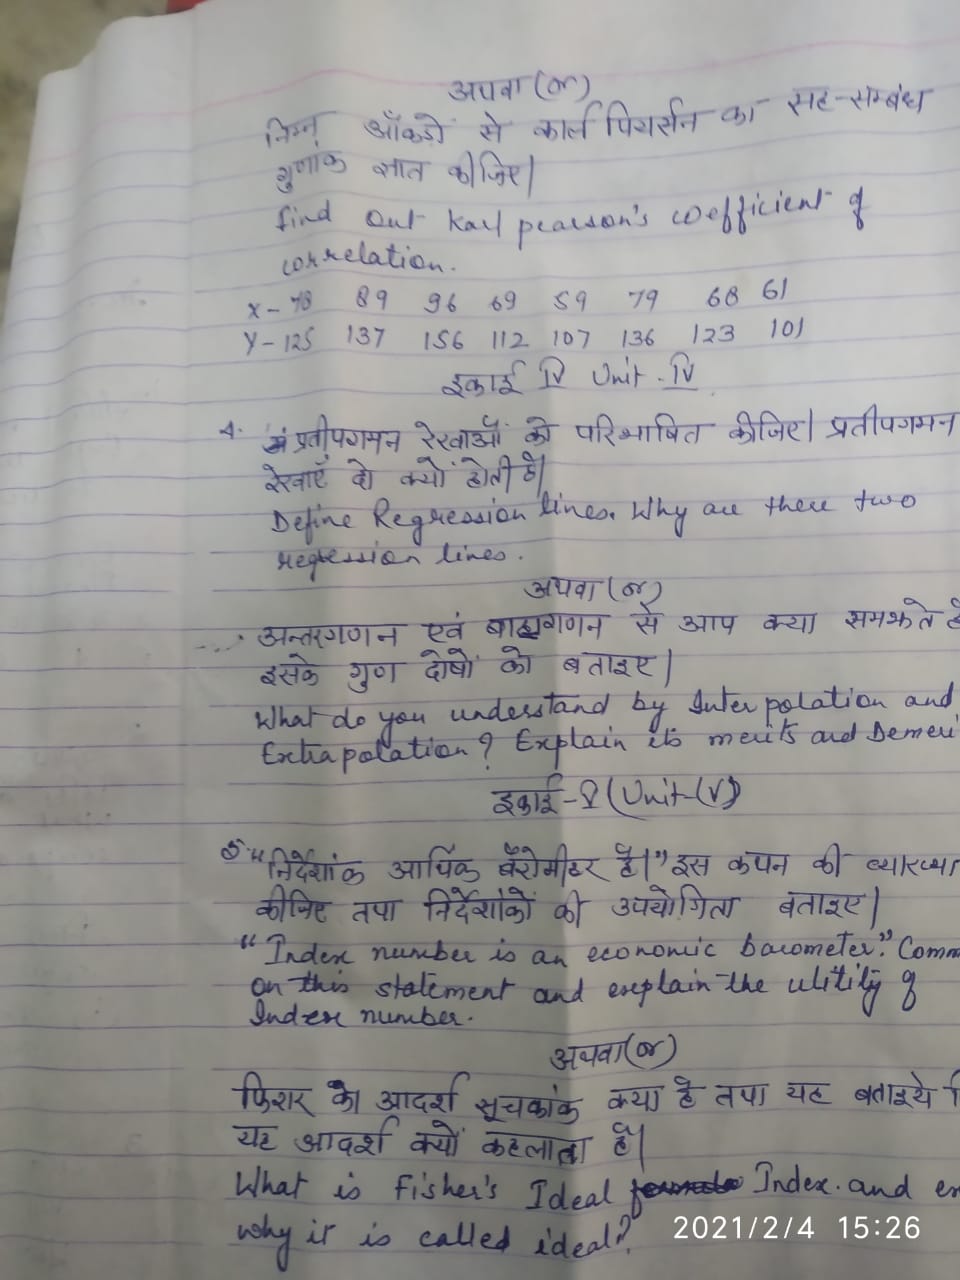 अथवा (or)
निम्न आँकड़ों से कार्ल पियर्सन का सह-सम्बंध
गुणांक ज्ञात कीजिए।
find out Karl pearson's coefficient of
correlation.
X - 78 89 96 69 59 79 68 61
Y - 125 137 156 112 107 136 123 101
इकाई IV Unit - IV
4. प्रतीपगमन रेखाओं को परिभाषित कीजिए। प्रतीपगमन
रेखाएँ दो क्यों होती है।
Define Regression lines. Why are there two
regression lines.
अथवा (or)
अन्तरगणन एवं बाह्यगणन से आप क्या समझते
इसके गुण दोषों को बताइए।
What do you understand by Interpolation and
Extrapolation? Explain its merits and Demeri
इकाई - V (Unit-(V)
5. "निर्देशांक आर्थिक बैरोमीटर है।" इस कथन की व्याख्या
कीजिए तथा निर्देशांकों की उपयोगिता बताइए।
"Index number is an economic barometer." Comm
on this statement and explain the utility of
Index number.
अथवा (or)
फिशर का आदर्श सूचकांक क्या है तथा यह बताइये
यह आदर्श क्यों कहलाता है।
What is Fisher's Ideal Index. and
why it is called ideal?
2021/2/4 15:26